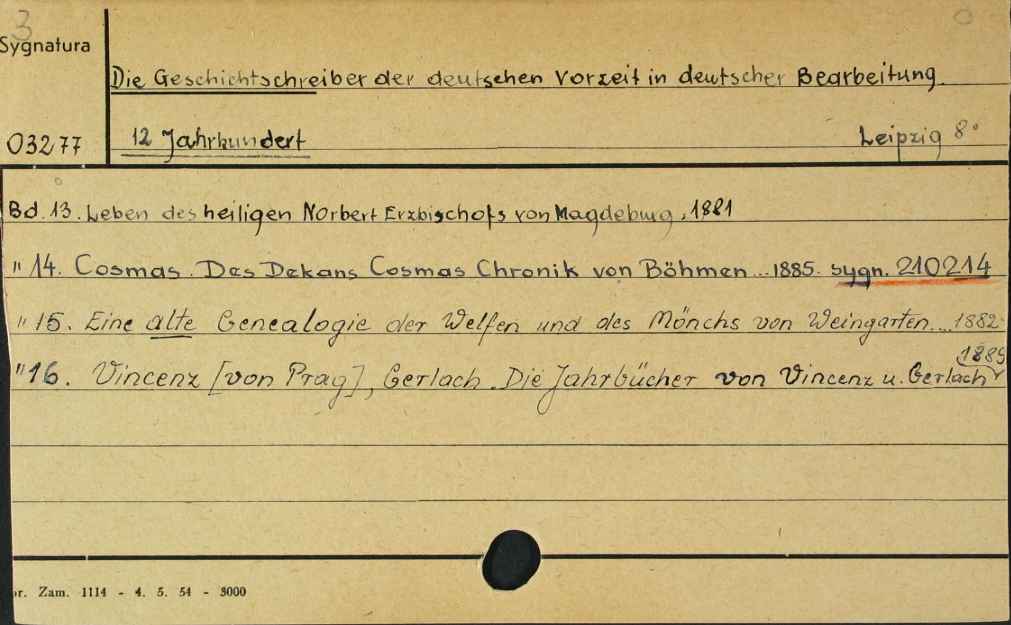 3
Sygnatura
Die Geschichtschreiber der deutschen Vorzeit in deutscher Bearbeitung.
03277
12 Jahrhundert
Leipzig 8°
Bd. 13. Leben des heiligen Norbert Erzbischofs von Magdeburg, 1881
" 14. Cosmas. Des Dekans Cosmas Chronik von Böhmen... 1885. sygn. 210214
" 15. Eine alte Genealogie der Welfen und des Mönchs von Weingarten.... 1882.
1889
" 16. Vincenz [von Prag], Gerlach. Die Jahrbücher von Vincenz u. Gerlach
Zam. 1114 - 4. 5. 54 - 3000